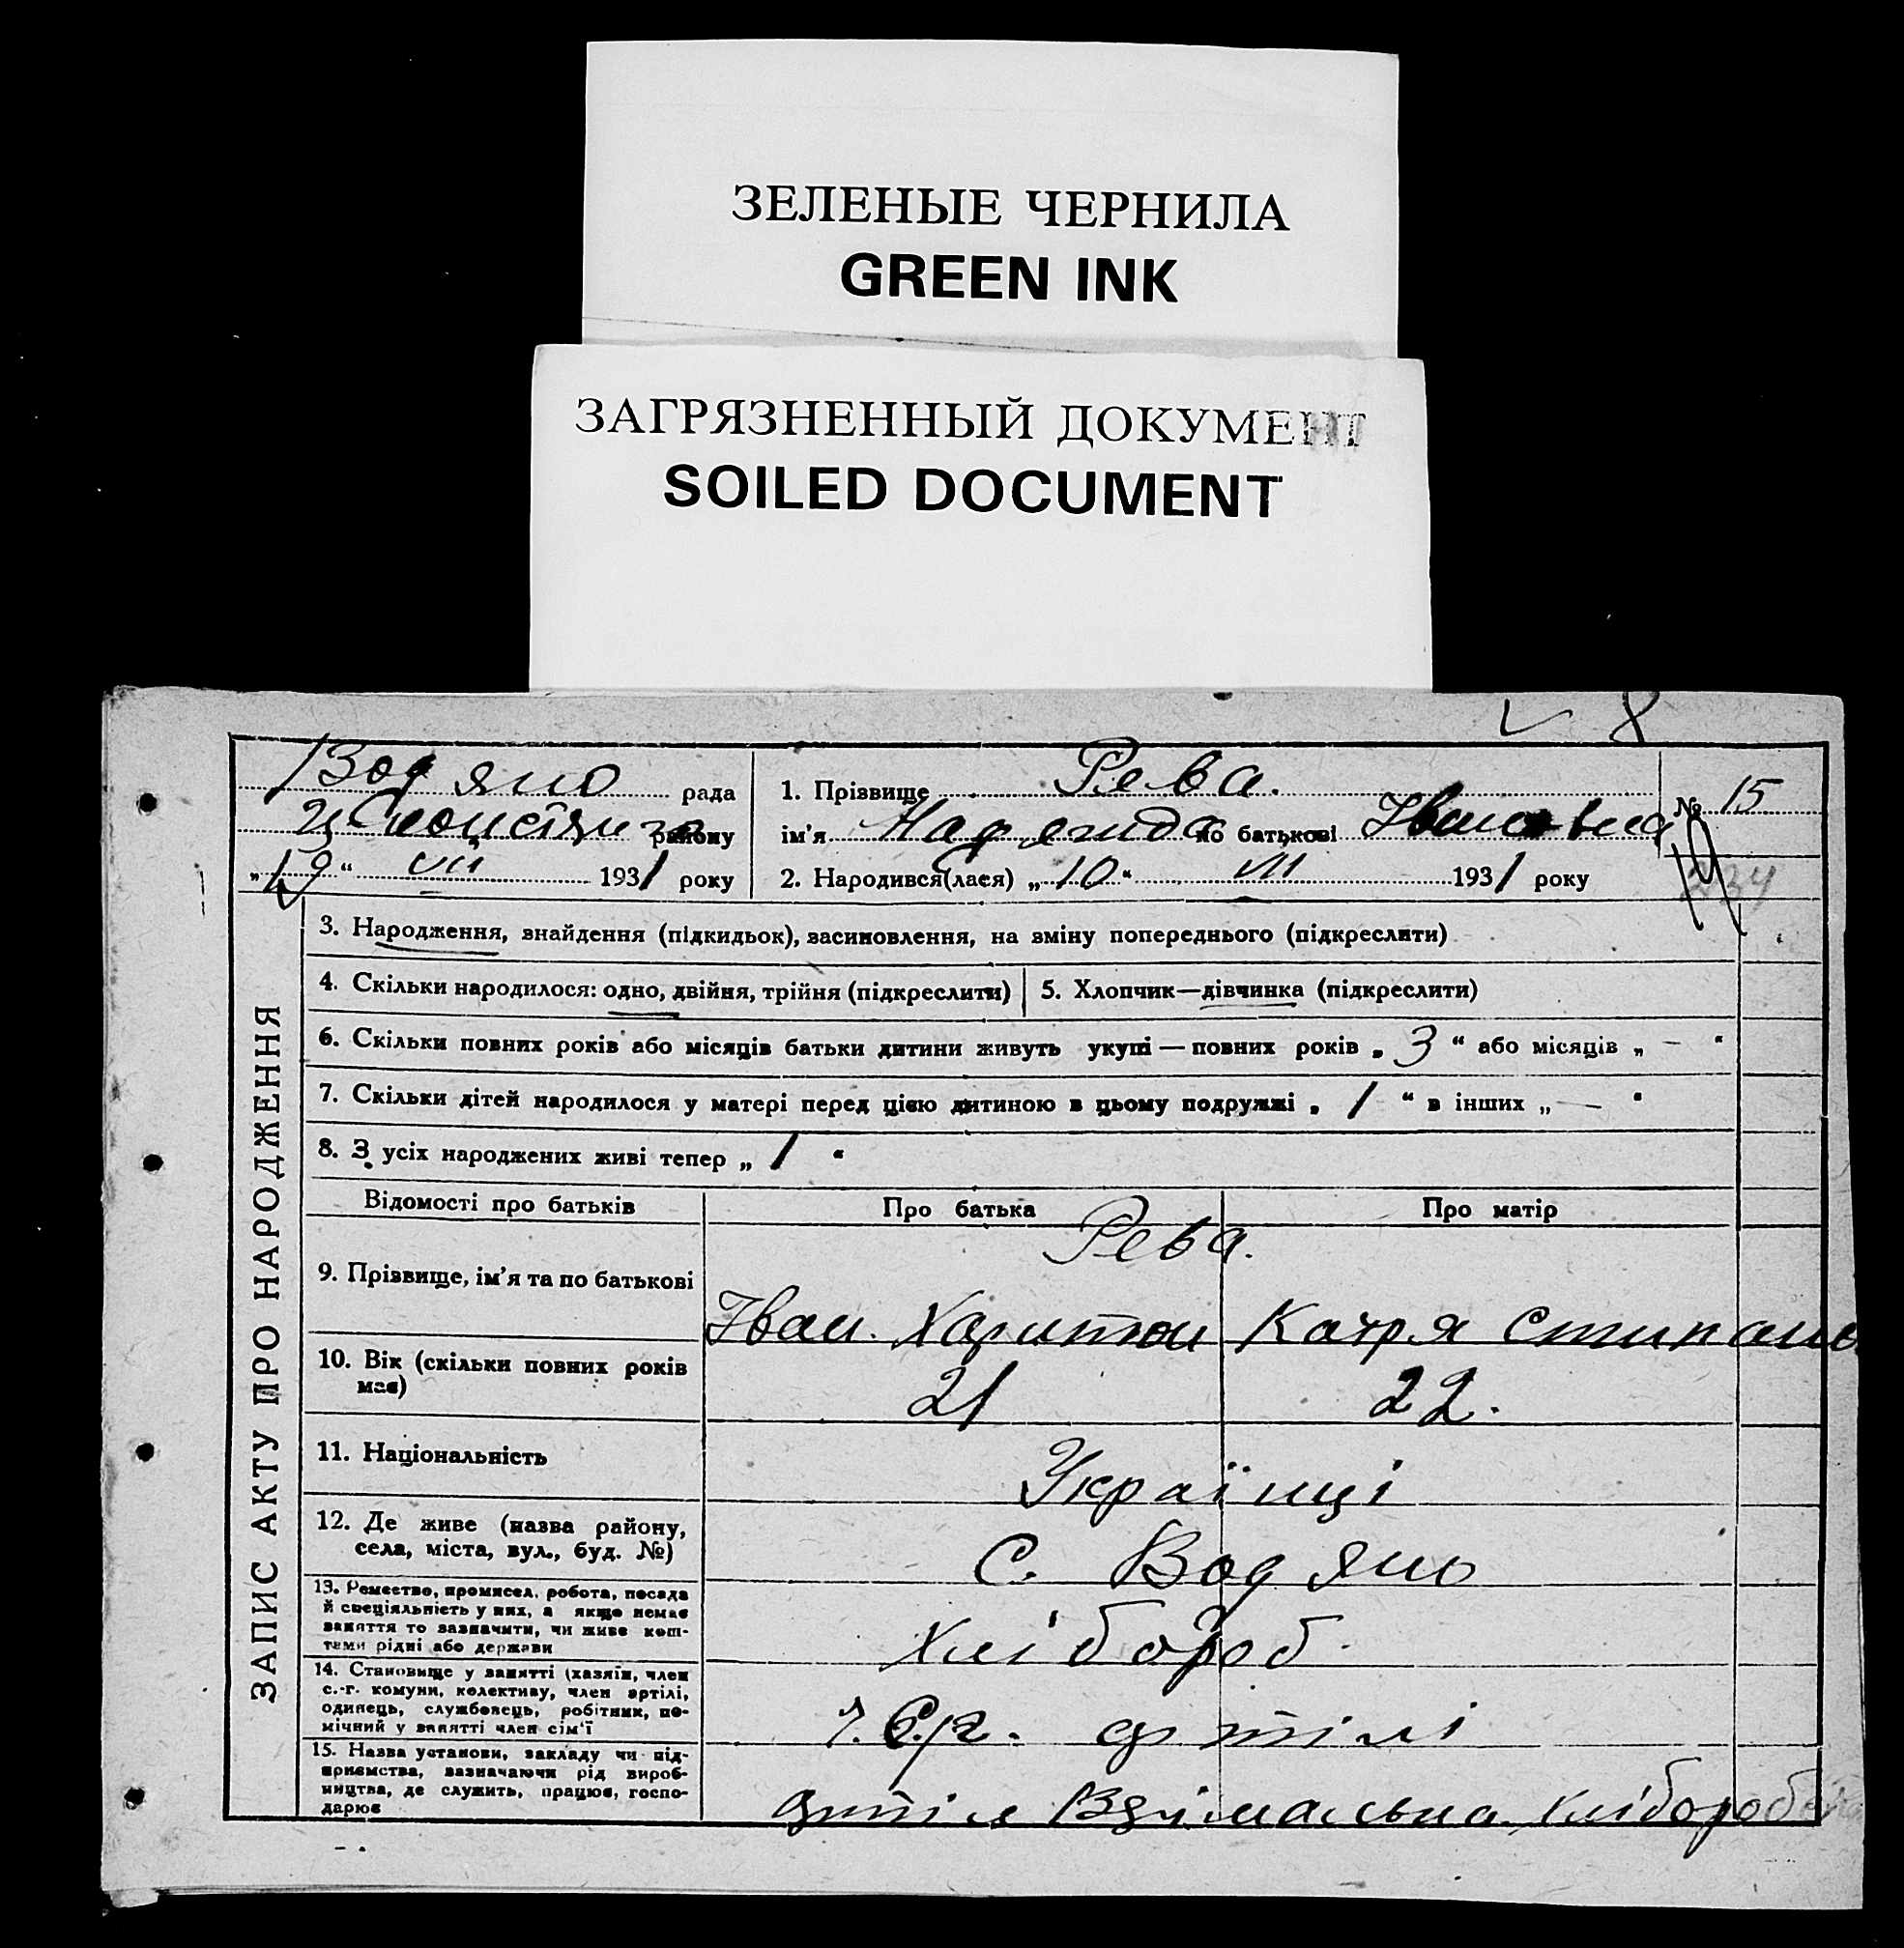 ЗЕЛЕНЫЕ ЧЕРНИЛА
GREEN INK
ЗАГРЯЗНЕННЫЙ ДОКУМЕНТ
SOILED DOCUMENT
Водяно рада
району
„19“ VII 1931 року
1. Прізвище Рева.
ім’я Надежда по батькові Івановна
№ 15
2. Народився(лася) „10“ VII 1931 року
234
ЗАПИС АКТУ ПРО НАРОДЖЕННЯ
3. Народження, знайдення (підкидьок), засиновлення, на зміну попереднього (підкреслити)
4. Скільки народилося: одно, двійня, трійня (підкреслити)
5. Хлопчик—дівчинка (підкреслити)
6. Скільки повних років або місяців батьки дитини живуть укупі — повних років „ 3 “ або місяців „ — “
7. Скільки дітей народилося у матері перед цією дитиною в цьому подружжі „ 1 “ в інших „ — “
8. З усіх народжених живі тепер „ 1 “
Відомості про батьків Про батька Про матір
Рева.
9. Прізвище, ім’я та по батькові
Іван. Харитон Катря Стипано
10. Вік (скільки повних років має)
21 22.
11. Національність
Українці
12. Де живе (назва району,
села, міста, вул., буд. №)
С. Водяно
13. Ремество, промисел, робота, посада
й спеціяльність у них, а якщо немає
заняття то зазначити, чи живе кош-
тами рідні або держави
Хлібороб.
14. Становище у занятті (хазяїн, член
с.-г. комуни, колективу, член артілі,
одинець, службовець, робітник, по-
мічний у занятті член сім’ї
артілі
15. Назва установи, закладу чи під-
приємства, зазначаючи рід вироб-
ництва, де служить, працює, госпо-
дарює
артіля хлібороб